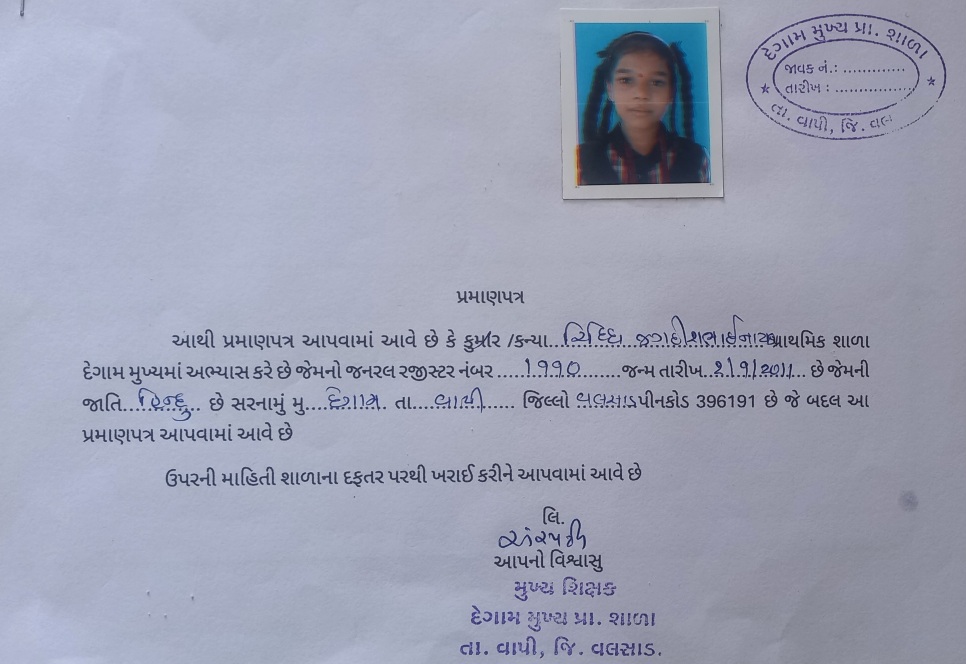 દેગામ મુખ્ય પ્રા. શાળા
જાવક નં.: .............
તારીખ : .................
તા. વાપી, જિ. વલ
પ્રમાણપત્ર
આથી પ્રમાણપત્ર આપવામાં આવે છે કે કુમાર /કન્યા...રિધ્ધિ જગદીશભાઈ નાયકા પ્રાથમિક શાળા
દેગામ મુખ્યમાં અભ્યાસ કરે છે જેમનો જનરલ રજીસ્ટર નંબર ....૧૧૧૦.......જન્મ તારીખ..૨/૧/૨૦૧૧.. છે જેમની
જાતિ...હિન્દુ.. છે સરનામું મુ....દેગામ. તા. ...વાપી..... જિલ્લો વલસાડ પીનકોડ 396191 છે જે બદલ આ
પ્રમાણપત્ર આપવામાં આવે છે
ઉપરની માહિતી શાળાના દફતર પરથી ખરાઈ કરીને આપવામાં આવે છે
લિ.
આપનો વિશ્વાસુ
મુખ્ય શિક્ષક
દેગામ મુખ્ય પ્રા. શાળા
તા. વાપી, જિ. વલસાડ.